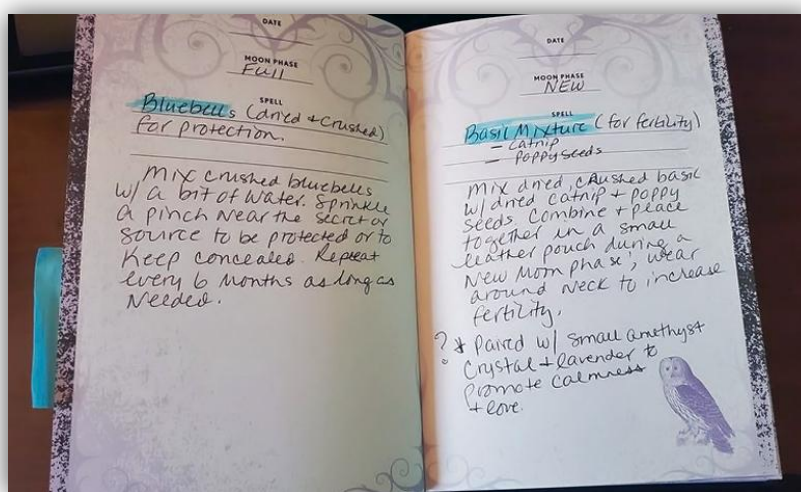 DATE
MOON PHASE
Full
SPELL
Bluebells (dried + Crushed)
for protection.
Mix crushed bluebells
w/ a bit of water. Sprinkle
a pinch near the secret or
source to be protected or to
keep concealed. Repeat
every 6 months as long as
needed.
DATE
MOON PHASE
NEW
SPELL
Basil Mixture (for fertility)
- Catnip
- Poppy seeds
Mix dried, crushed basil
w/ dried catnip + poppy
seeds. Combine + place
together in a small
leather pouch during a
New Moon phase; wear
around neck to increase
fertility.
? * Paired w/ small amethyst
Crystal + lavender to
Promote calmness
+ love.